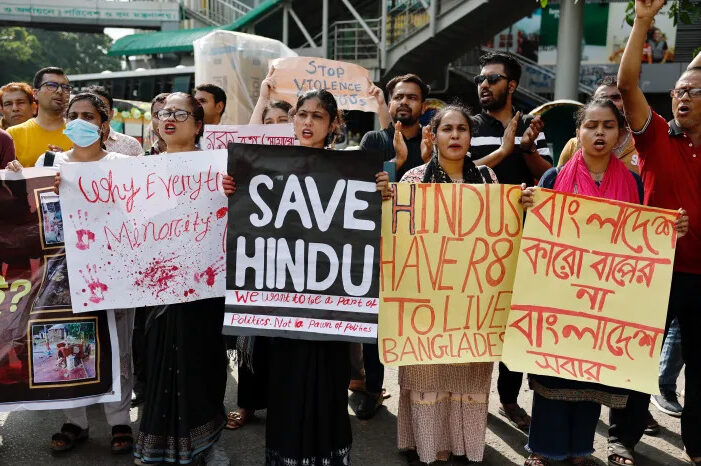 STOP
VIOLENCE
Why Everyt
Minority
SAVE
HINDU
We want to be a part of
Politics. Not a Pawn of Politics
HINDUS
HAVE R8
TO LIVE
BANGLADES
বাংলাদেশ
কারো বাপের
না
বাংলাদেশ
সবার
??